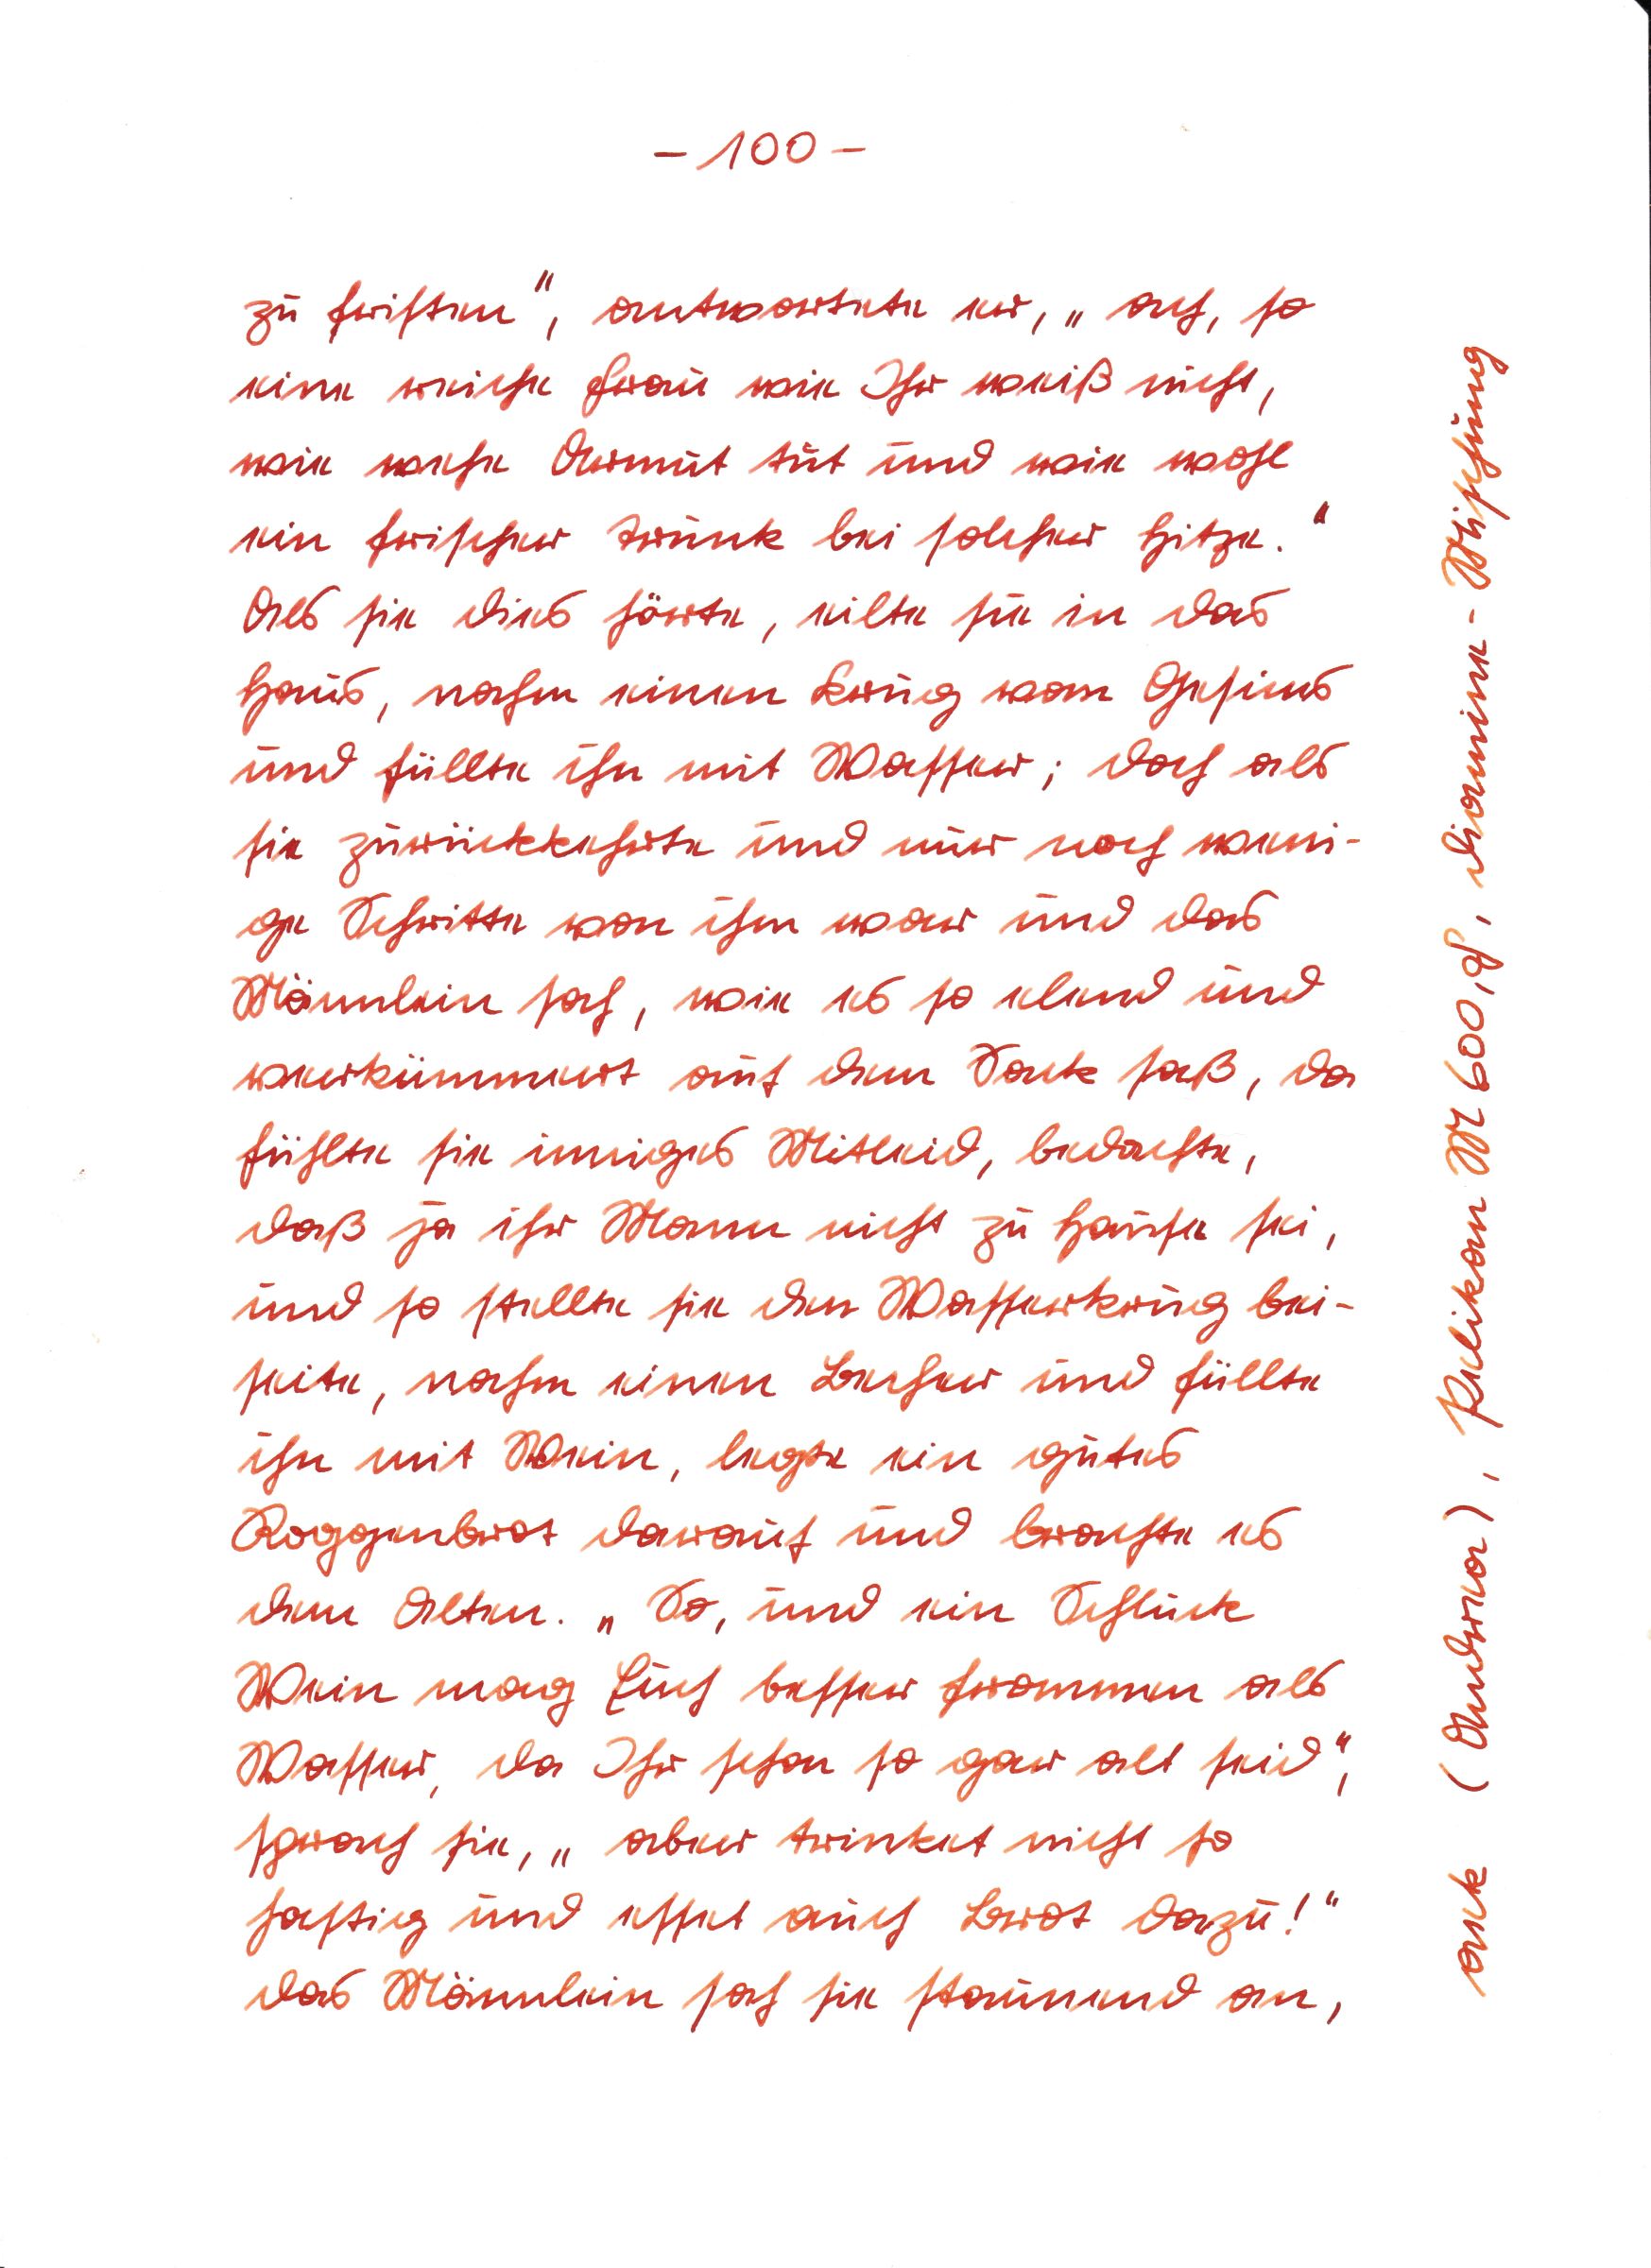 - 100 -
zu fristen", antwortete er, „ ach, so
eine reiche Frau wie Ihr weiß nicht,
wie wehe Armut tut und wie wohl
ein frischer Trunk bei solcher Hitze."
Als sie dies hörte, eilte sie in das
Haus, nahm einen Krug vom Gesims
und füllte ihn mit Wasser; doch als
sie zurückkehrte und nur noch weni-
ge Schritte von ihm war und das
Männlein sah, wie es so elend und
verkümmert auf dem Sack saß, da
fühlte sie inniges Mitleid, bedachte,
daß ja ihr Mann nicht zu Hause sei,
und so stellte sie den Wasserkrug bei-
seite, nahm einen Becher und füllte
ihn mit Wein, legte ein gutes
Roggenbrot darauf und brachte es
dem Alten. „ So, und ein Schluck
Wein mag Euch besser frommen als
Wasser, da Ihr schon so gar alt seid",
sprach sie, „ aber trinket nicht so
hastig und esset auch Brot dazu!"
Das Männlein sah sie staunend an,
(Andrea), Pelikan M 600, Diamine - Mischung